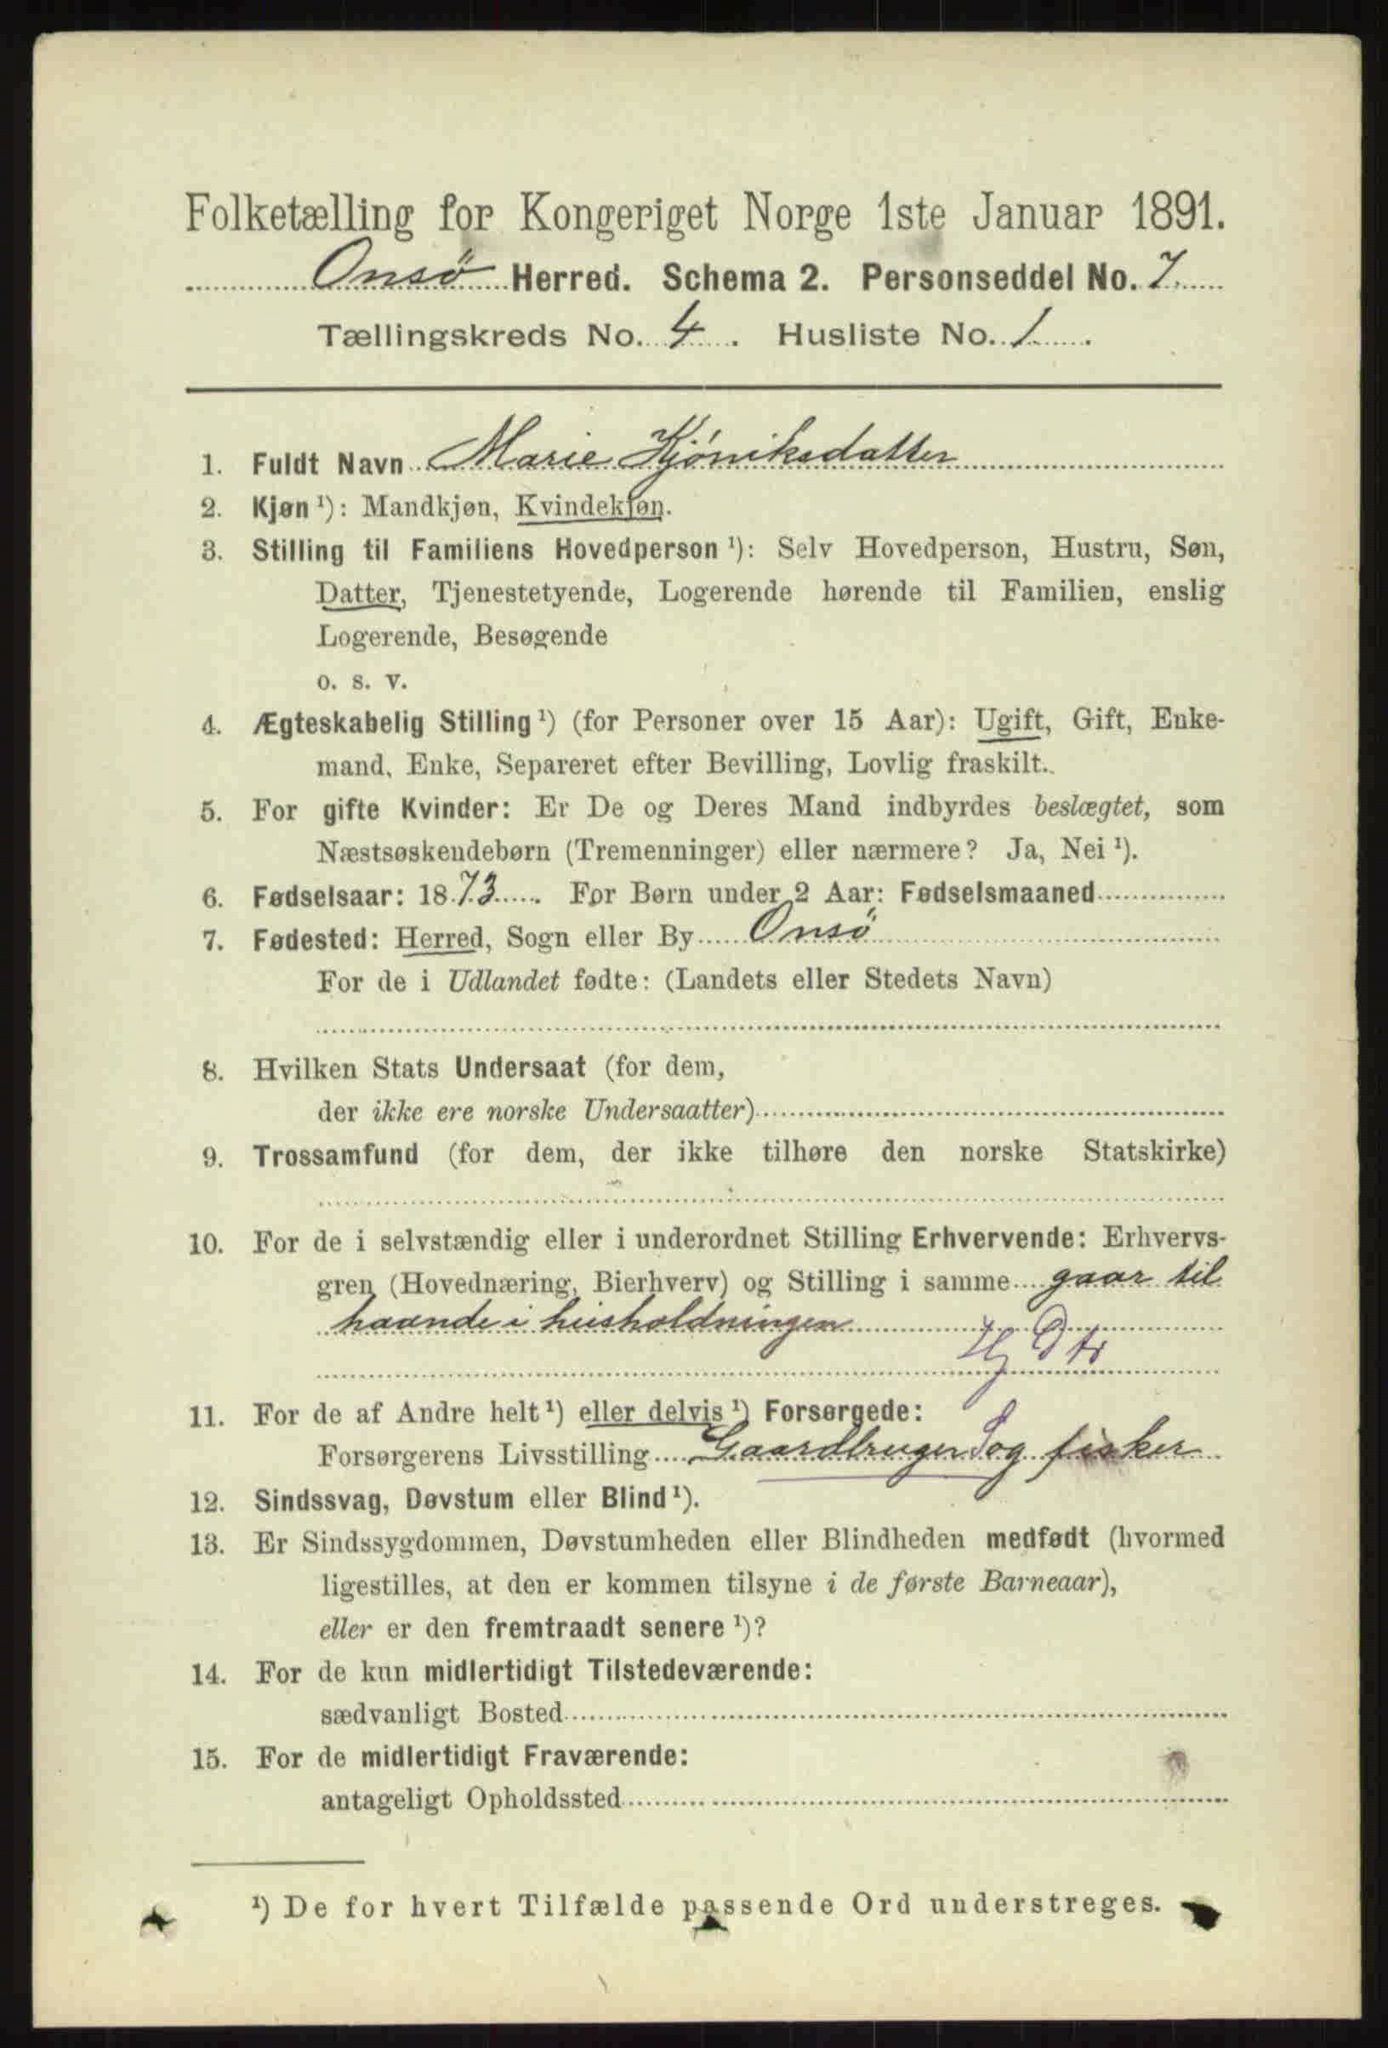 Folketælling for Kongeriget Norge 1ste Januar 1891.
Onsø Herred. Schema 2. Personseddel No. 7
Tællingskreds No. 4. Husliste No. 1.
1. Fuldt Navn Marie Kjøniksdatter
2. Kjøn ¹): Mandkjøn, Kvindekjøn.
3. Stilling til Familiens Hovedperson ¹): Selv Hovedperson, Hustru, Søn,
Datter, Tjenestetyende, Logerende hørende til Familien, enslig
Logerende, Besøgende
o. s. v.
4. Ægteskabelig Stilling ¹) (for Personer over 15 Aar): Ugift, Gift, Enke-
mand, Enke, Separeret efter Bevilling, Lovlig fraskilt.
5. For gifte Kvinder: Er De og Deres Mand indbyrdes beslægtet, som
Næstsøskendebørn (Tremenninger) eller nærmere? Ja, Nei ¹).
6. Fødselsaar: 1873. For Børn under 2 Aar: Fødselsmaaned
7. Fødested: Herred, Sogn eller By Onsø
For de i Udlandet fødte: (Landets eller Stedets Navn)
8. Hvilken Stats Undersaat (for dem,
der ikke ere norske Undersaatter)
9. Trossamfund (for dem, der ikke tilhøre den norske Statskirke)
10. For de i selvstændig eller i underordnet Stilling Erhvervende: Erhvervs-
gren (Hovednæring, Bierhverv) og Stilling i samme gaar til
haande i husholdningen
Hj Dtr
11. For de af Andre helt ¹) eller delvis ¹) Forsørgede:
Forsørgerens Livsstilling Gaardbruger S og fisker
12. Sindssvag, Døvstum eller Blind ¹).
13. Er Sindssygdommen, Døvstumheden eller Blindheden medfødt (hvormed
ligestilles, at den er kommen tilsyne i de første Barneaar),
eller er den fremtraadt senere ¹)?
14. For de kun midlertidigt Tilstedeværende:
sædvanligt Bosted
15. For de midlertidigt Fraværende:
antageligt Opholdssted
¹) De for hvert Tilfælde passende Ord understreges.